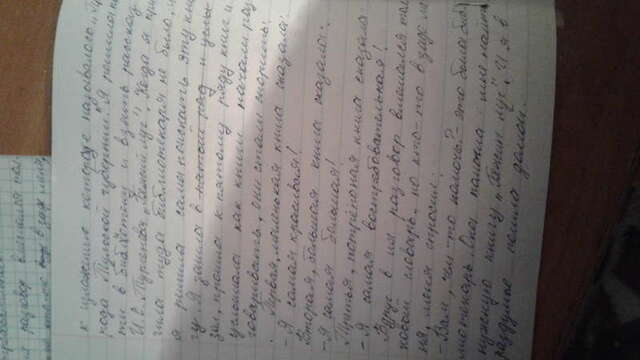 разговор вмешался тол-
но кто-то в зади меня,
к изложению которое называлось
рода Тульской губернии." Я решила по
ти в библиотеку и взять рассказ
И.С. Тургенева „Бежин луг". Когда я при
чила туда библиотекаря не было, и
я решила сама поискать эту кни
гу. Я зашла в пятый ряд и услы
зал, прошла к пятому ряду книг и
услышала как книги начали раз
говаривать, они стали спорить.
Первая, маленькая книга сказала:
- Я самая красивая!
Вторая, большая книга сказала:
- Я самая большая!
Третья, потрёпоная книга сказала:
- Я самая востребовательная!
Вдруг в их разговор вмешался тол
ковой словарь, но кто-то в зади ме
ня, меня спросил:
- Вам, чем-то помочь? - это была биб
лиотекарь. Она помогла мне найти
нужную книгу „Бежин луг". И я в
раздумье пошла домой.